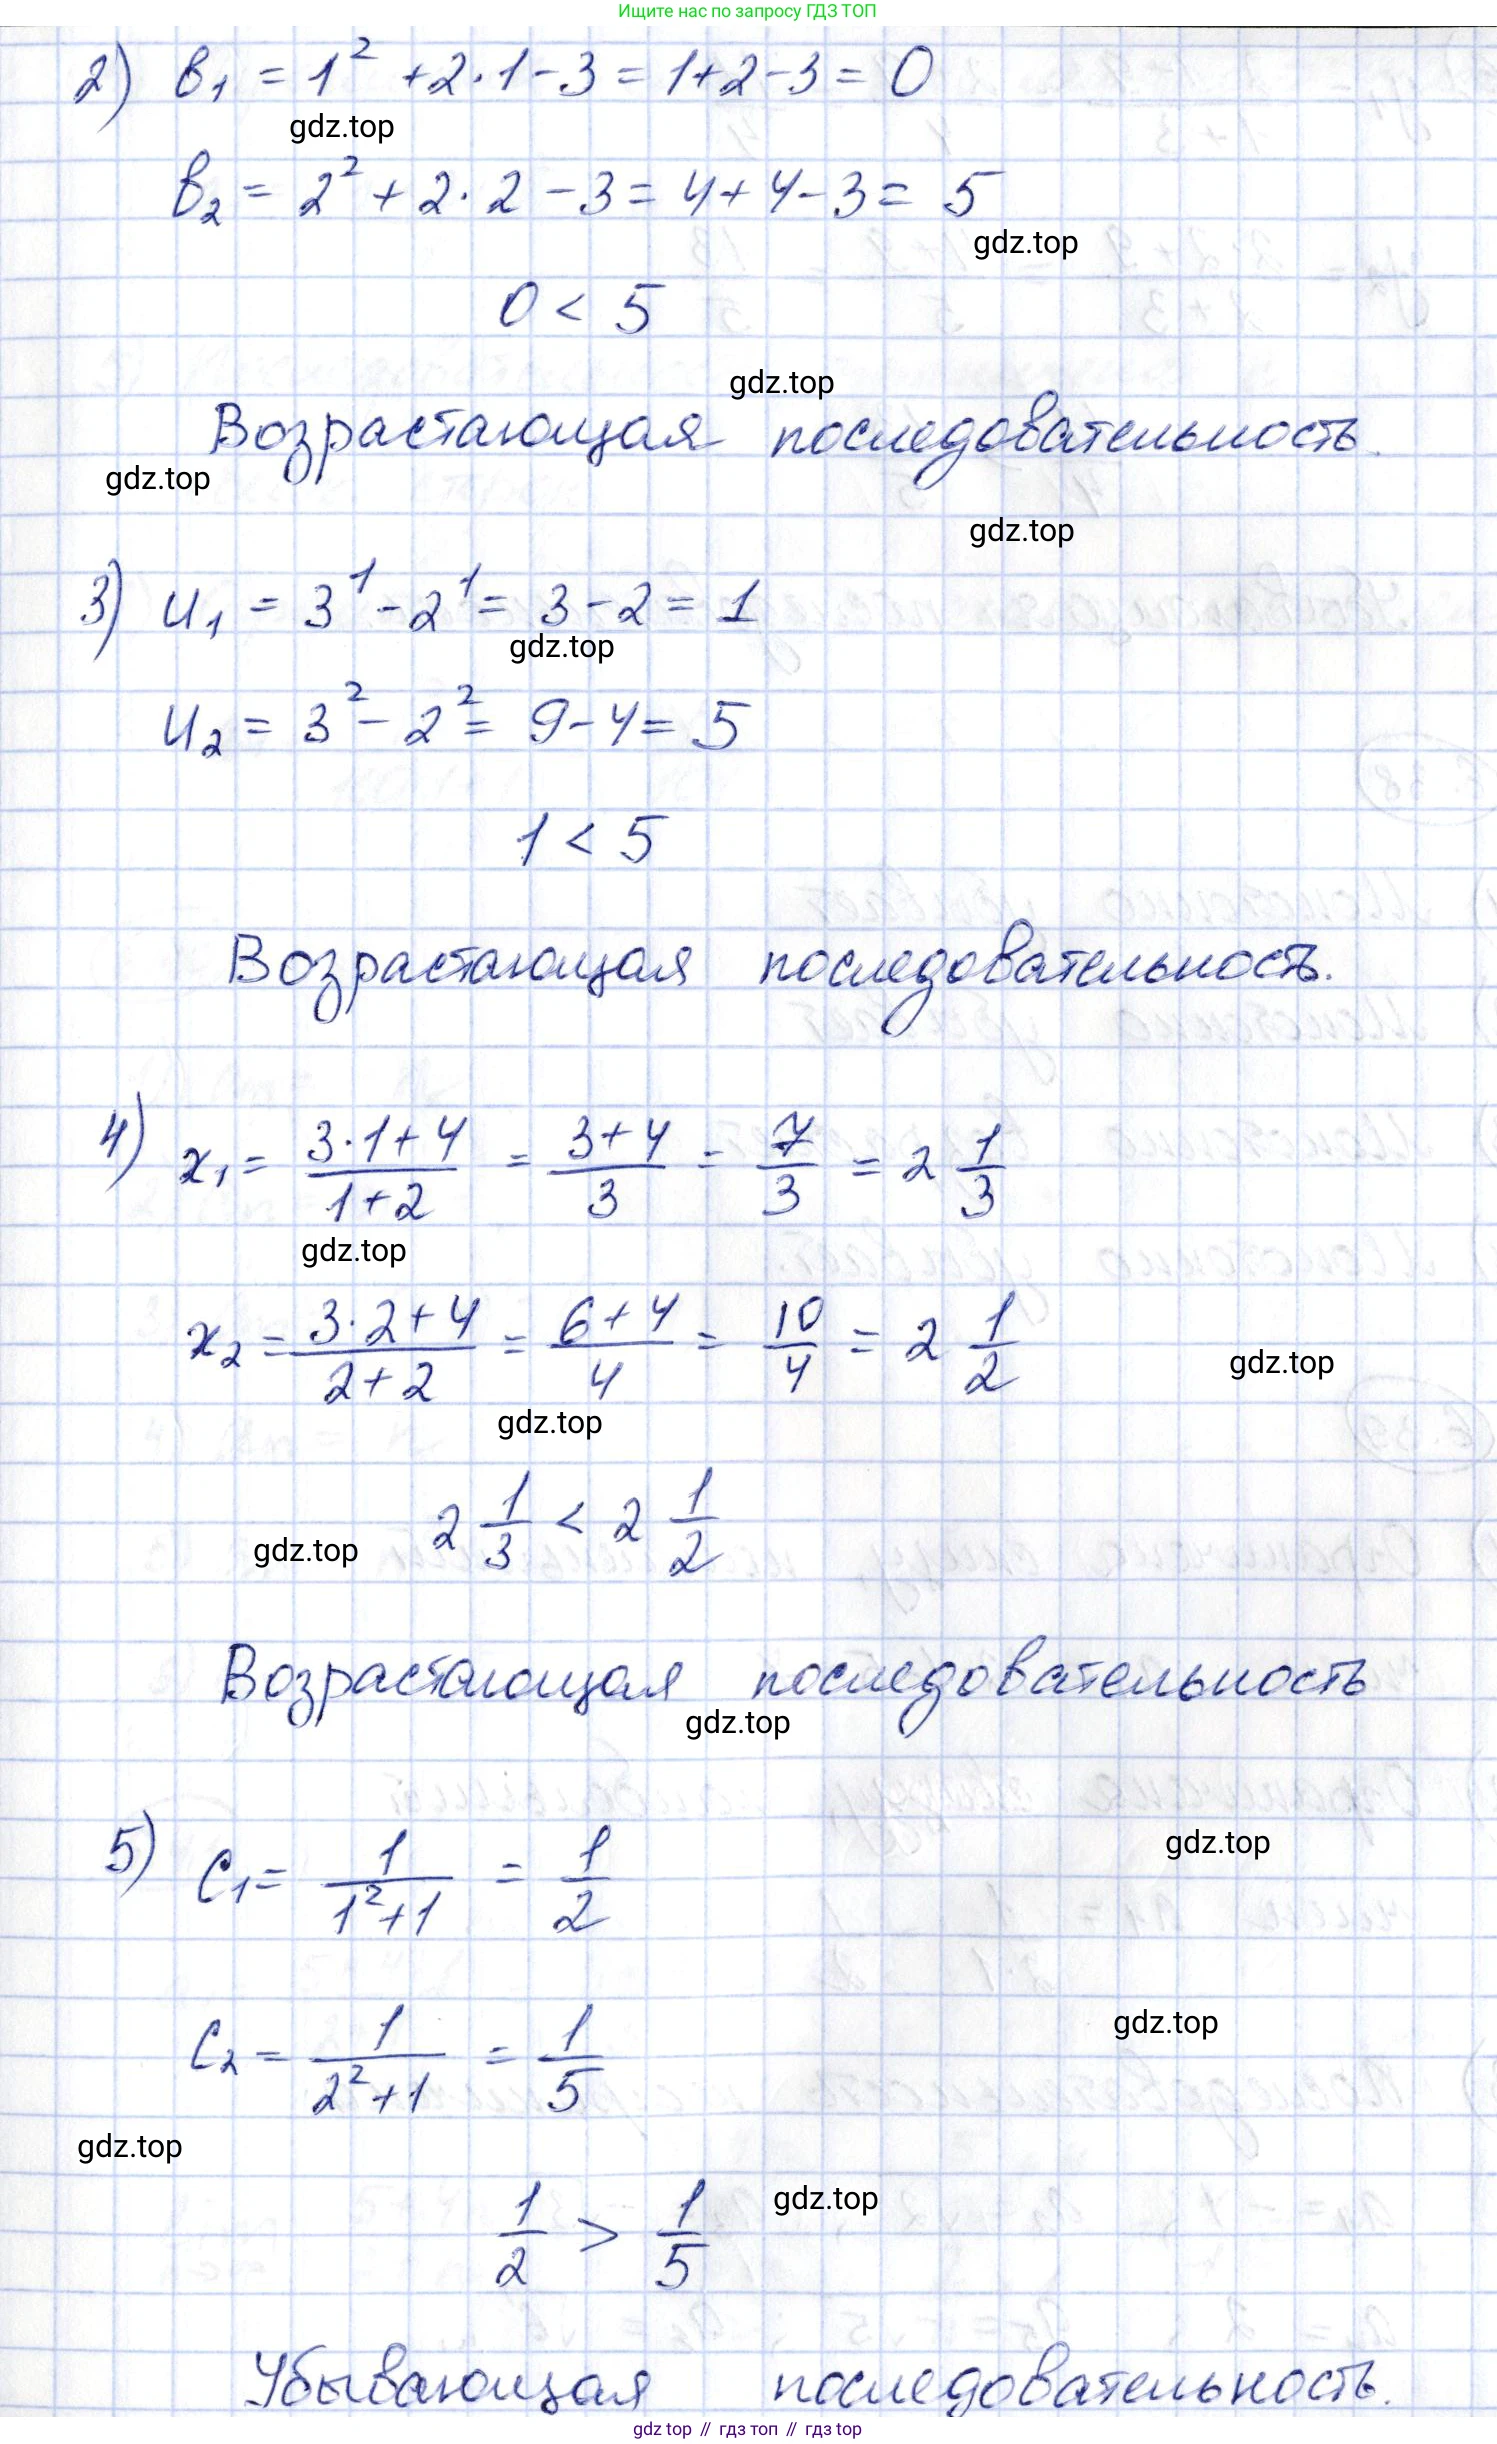 Ищите нас по запросу ГДЗ ТОП
2) в₁ = 1² + 2·1 - 3 = 1 + 2 - 3 = 0
gdz.top
в₂ = 2² + 2·2 - 3 = 4 + 4 - 3 = 5
gdz.top
0 < 5
gdz.top
Возрастающая последовательность.
gdz.top
gdz.top
3) u₁ = 3¹ - 2¹ = 3 - 2 = 1
gdz.top
u₂ = 3² - 2² = 9 - 4 = 5
1 < 5
Возрастающая последовательность.
4) x₁ = (3·1+4)/(1+2) = (3+4)/3 = 7/3 = 2 1/3
gdz.top
x₂ = (3·2+4)/(2+2) = (6+4)/4 = 10/4 = 2 1/2
gdz.top
gdz.top
2 1/3 < 2 1/2
gdz.top
Возрастающая последовательность
gdz.top
gdz.top
5) c₁ = 1/(1²+1) = 1/2
gdz.top
c₂ = 1/(2²+1) = 1/5
gdz.top
gdz.top
1/2 > 1/5
Убывающая последовательность.
gdz top // гдз топ // гдз top